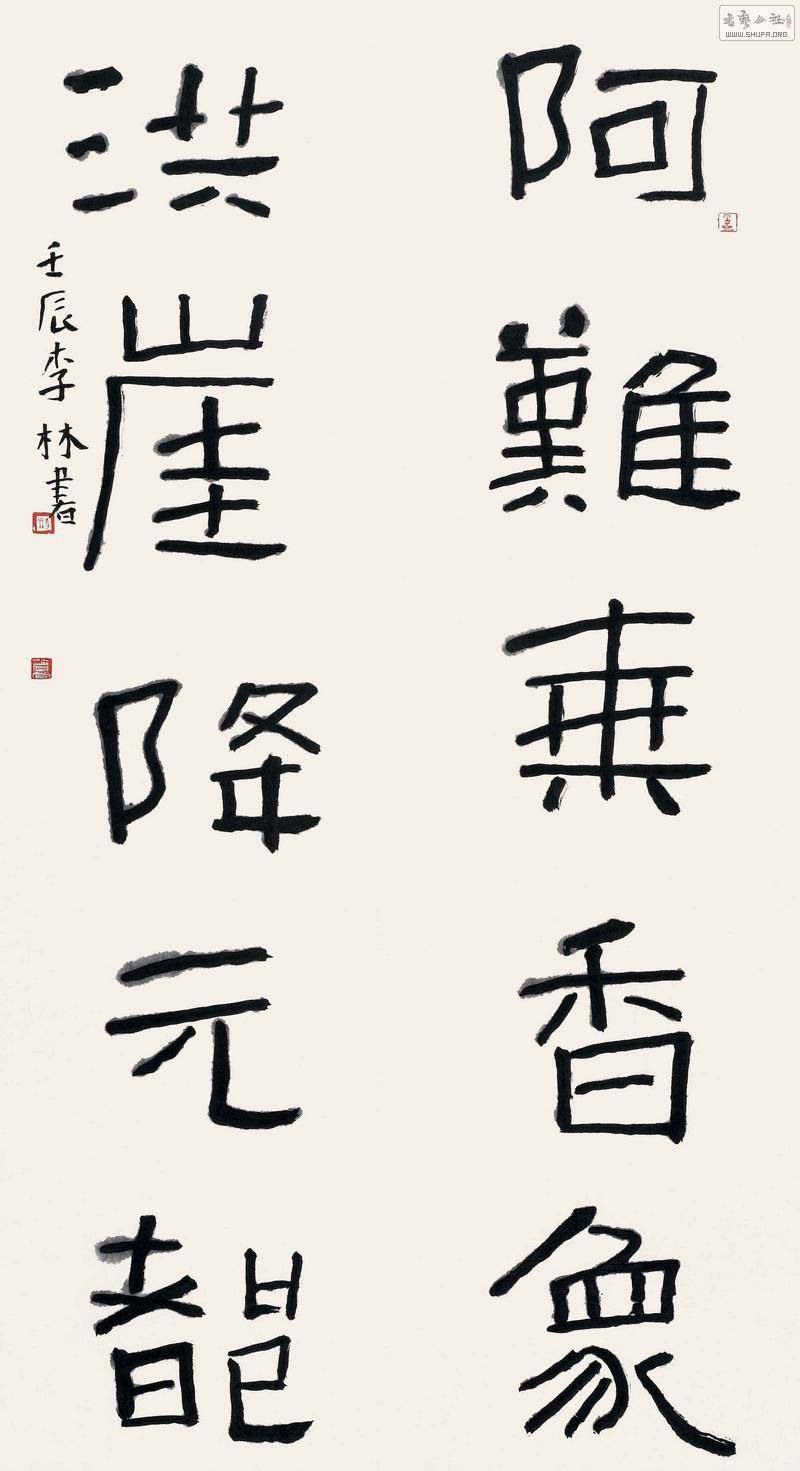 阿難乘香象
洪崖降元都
壬辰李林書
書藝公社
WWW.SHUFA.ORG